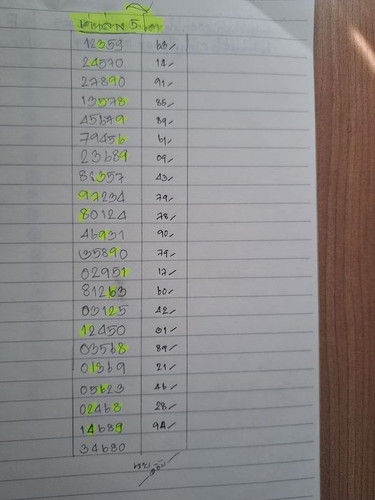 12359 63/
24570 14/
27890 91/
13578 85/
45679 89/
79456 61/
23689 09/
81357 43/
97234 79/
80124 78/
46931 90/
35890 79/
02951 17/
81263 60/
03125 42/
12450 01/
03568 89/
01369 21/
05623 46/
02468 28/
14689 94/
34680